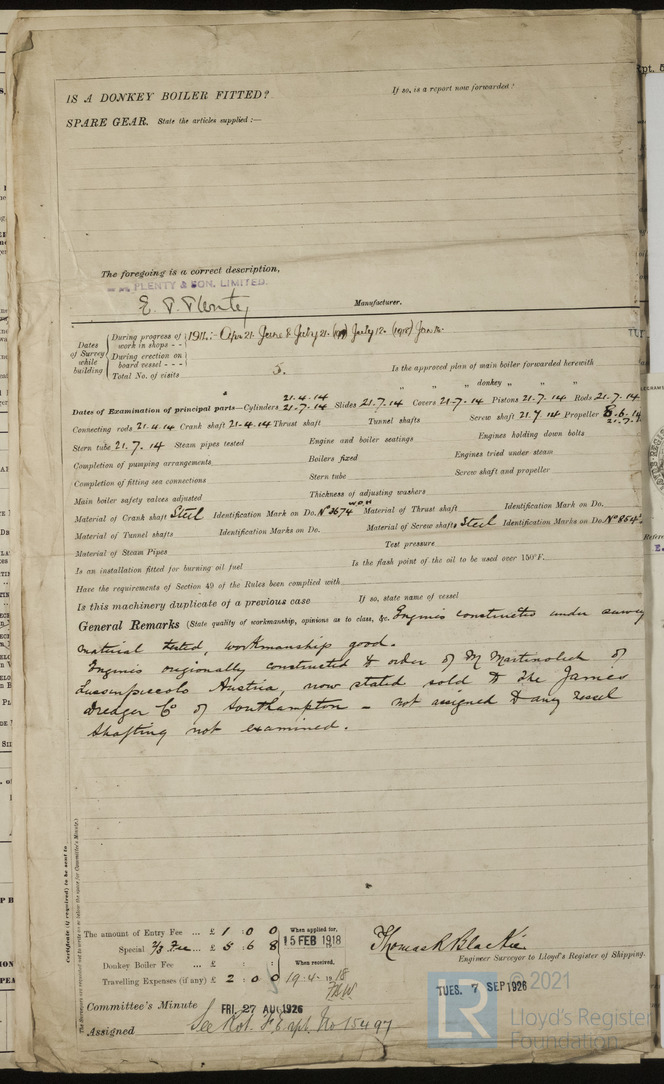 IS A DONKEY BOILER FITTED? If so, is a report now forwarded?
SPARE GEAR. State the articles supplied :—
The foregoing is a correct description,
PLENTY & SON, LIMITED.
E. P. Plenty Manufacturer.
Dates of Survey while building
During progress of work in shops - - 1914:- Apr 21. June 8 July 21. (1917) July 12. (1918) Jan
During erection on board vessel - - -
Total No. of visits 5. Is the approved plan of main boiler forwarded herewith
" " " donkey " " "
Dates of Examination of principal parts—Cylinders 21.4.14 21.7.14 Slides 21.7.14 Covers 21.7.14 Pistons 21.7.14 Rods 21.7.14
Connecting rods 21.4.14 Crank shaft 21.4.14 Thrust shaft Tunnel shafts Screw shaft 21.7.14 Propeller 8.6.14 21.7.14
Stern tube 21.7.14 Steam pipes tested Engine and boiler seatings Engines holding down bolts
Completion of pumping arrangements Boilers fixed Engines tried under steam
Completion of fitting sea connections Stern tube Screw shaft and propeller
Main boiler safety valves adjusted Thickness of adjusting washers
Material of Crank shaft Steel Identification Mark on Do. No 3674 WOH Material of Thrust shaft Identification Mark on Do.
Material of Tunnel shafts Identification Marks on Do. Material of Screw shafts Steel Identification Marks on Do. No 854
Material of Steam Pipes Test pressure
Is an installation fitted for burning oil fuel Is the flash point of the oil to be used over 150°F.
Have the requirements of Section 49 of the Rules been complied with
Is this machinery duplicate of a previous case If so, state name of vessel
General Remarks (State quality of workmanship, opinions as to class, &c. Engines constructed under survey
material tested, workmanship good.
Engines origionally constructed to order of M Martinolich of
Lussinpiccolo Austria, now stated sold to the James
Dredger Co of Southampton - not assigned to any vessel
Shafting not examined.
Certificate (if required) to be sent to
The Surveyors are requested not to write on or below the space for Committee's Minute.
The amount of Entry Fee ... £ 1 : 0 : 0 When applied for,
Special 2/3 Fee ... £ 5 . 6 . 8 15 FEB 1918
Donkey Boiler Fee ... £ : : When received,
Travelling Expenses (if any) £ 2 : 0 : 0 19.4.18
Thomas R Blackie
Engineer Surveyor to Lloyd's Register of Shipping.
TUES. 7 SEP 1926
Committee's Minute FRI. 27 AUG 1926
Assigned See Rot. F.E. rpt. No 15497
© 2021
LR
Lloyd's Register
Foundation